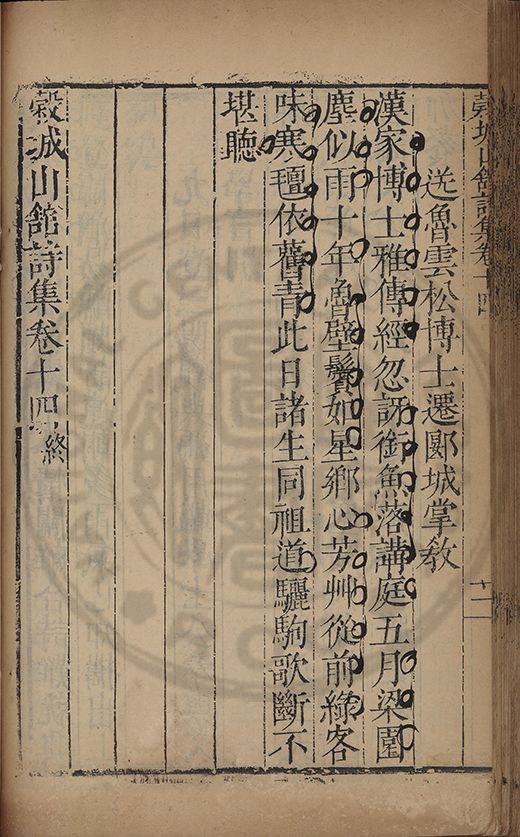 穀城山館詩集卷十四
十一
送魯雲松博士遷郾城掌教
漢家博士雅傳經忽訝銜魚落講庭五月梁園
塵似雨十年魯壁鬢如星鄉心芳艸從前綠客
味寒氊依舊青此日諸生同祖道驪駒歌斷不
堪聽
穀城山館詩集卷十四終